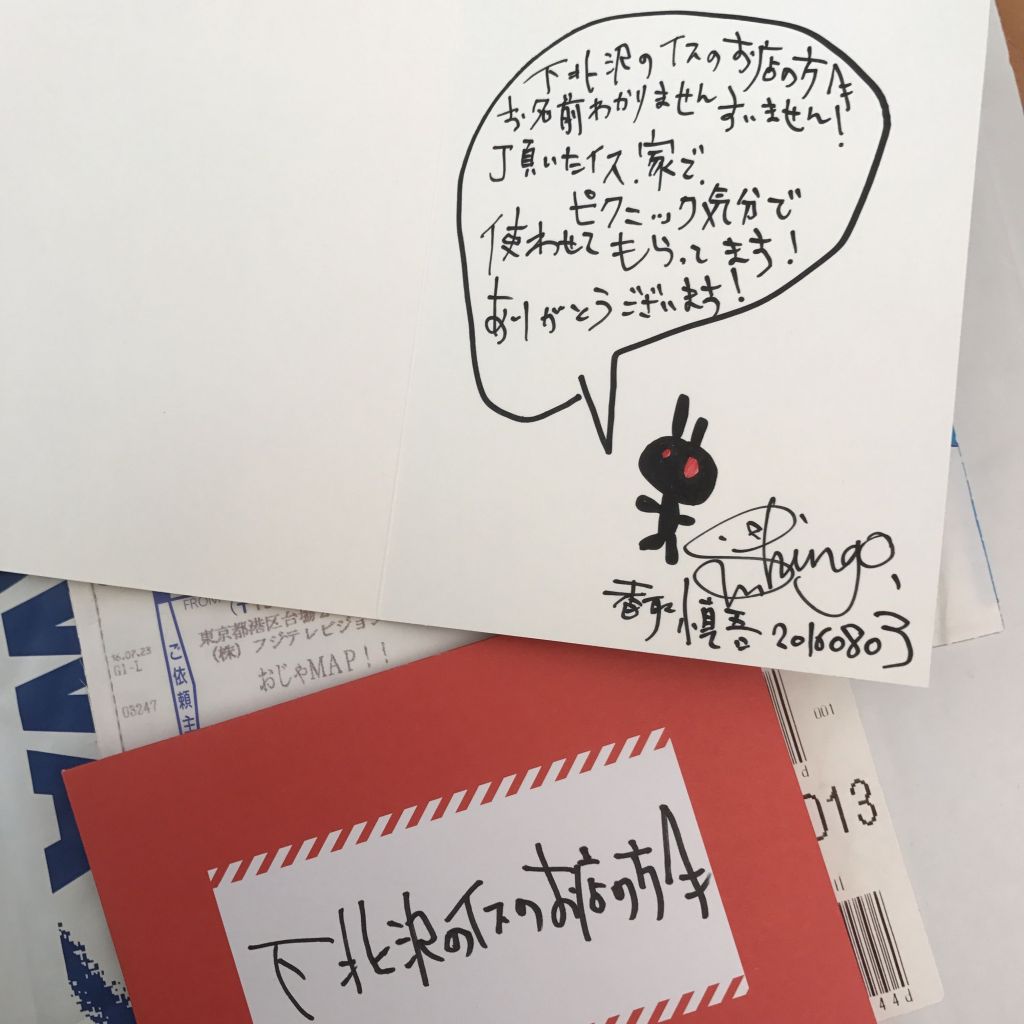 下北沢のイスのお店の方へ
お名前わかりません すいません!
頂いたイス.家で.
ピクニック気分で
使わせてもらってます!
ありがとうございます!
Shingo
香取慎吾 20160803
FROM
東京都港区台場
(株)フジテレビジョン
おじゃMAP!!
ご依頼主
16.07.23
G1-L
03247
001
d
013
44d
下北沢のイスのお店の方へ